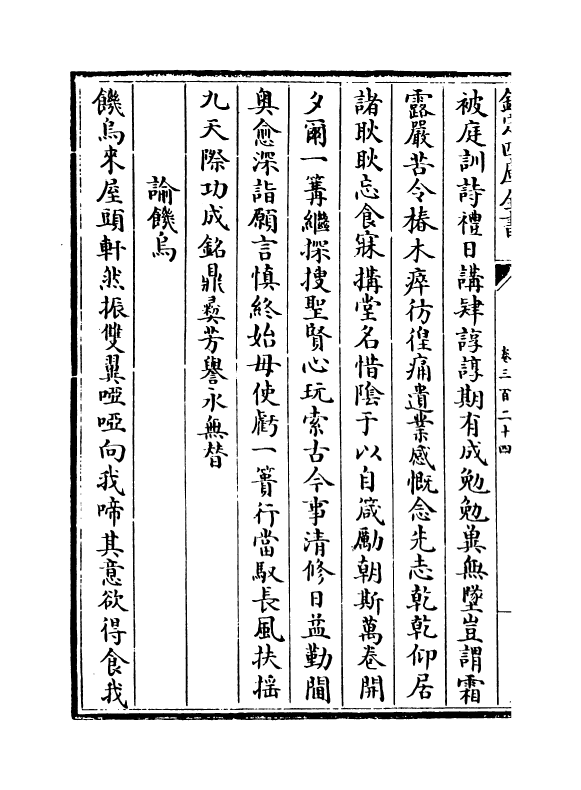 欽定四庫全書
卷三百二十四
被庭訓詩禮日講肄諄諄期有成勉勉冀無墜豈謂霜
露嚴苦令椿木瘁彷徨痛遺業感慨念先志乾乾仰居
諸耿耿忘食寐搆堂名惜陰于以自箴勵朝斯萬卷開
夕爾一篝繼探搜聖賢心玩索古今事清修日益勤閫
奥愈深詣願言慎終始毋使虧一簣行當馭長風扶揺
九天際功成銘鼎彞芳譽永無替
論饑烏
饑烏來屋頭軒然振雙翼啞啞向我啼其意欲得食我